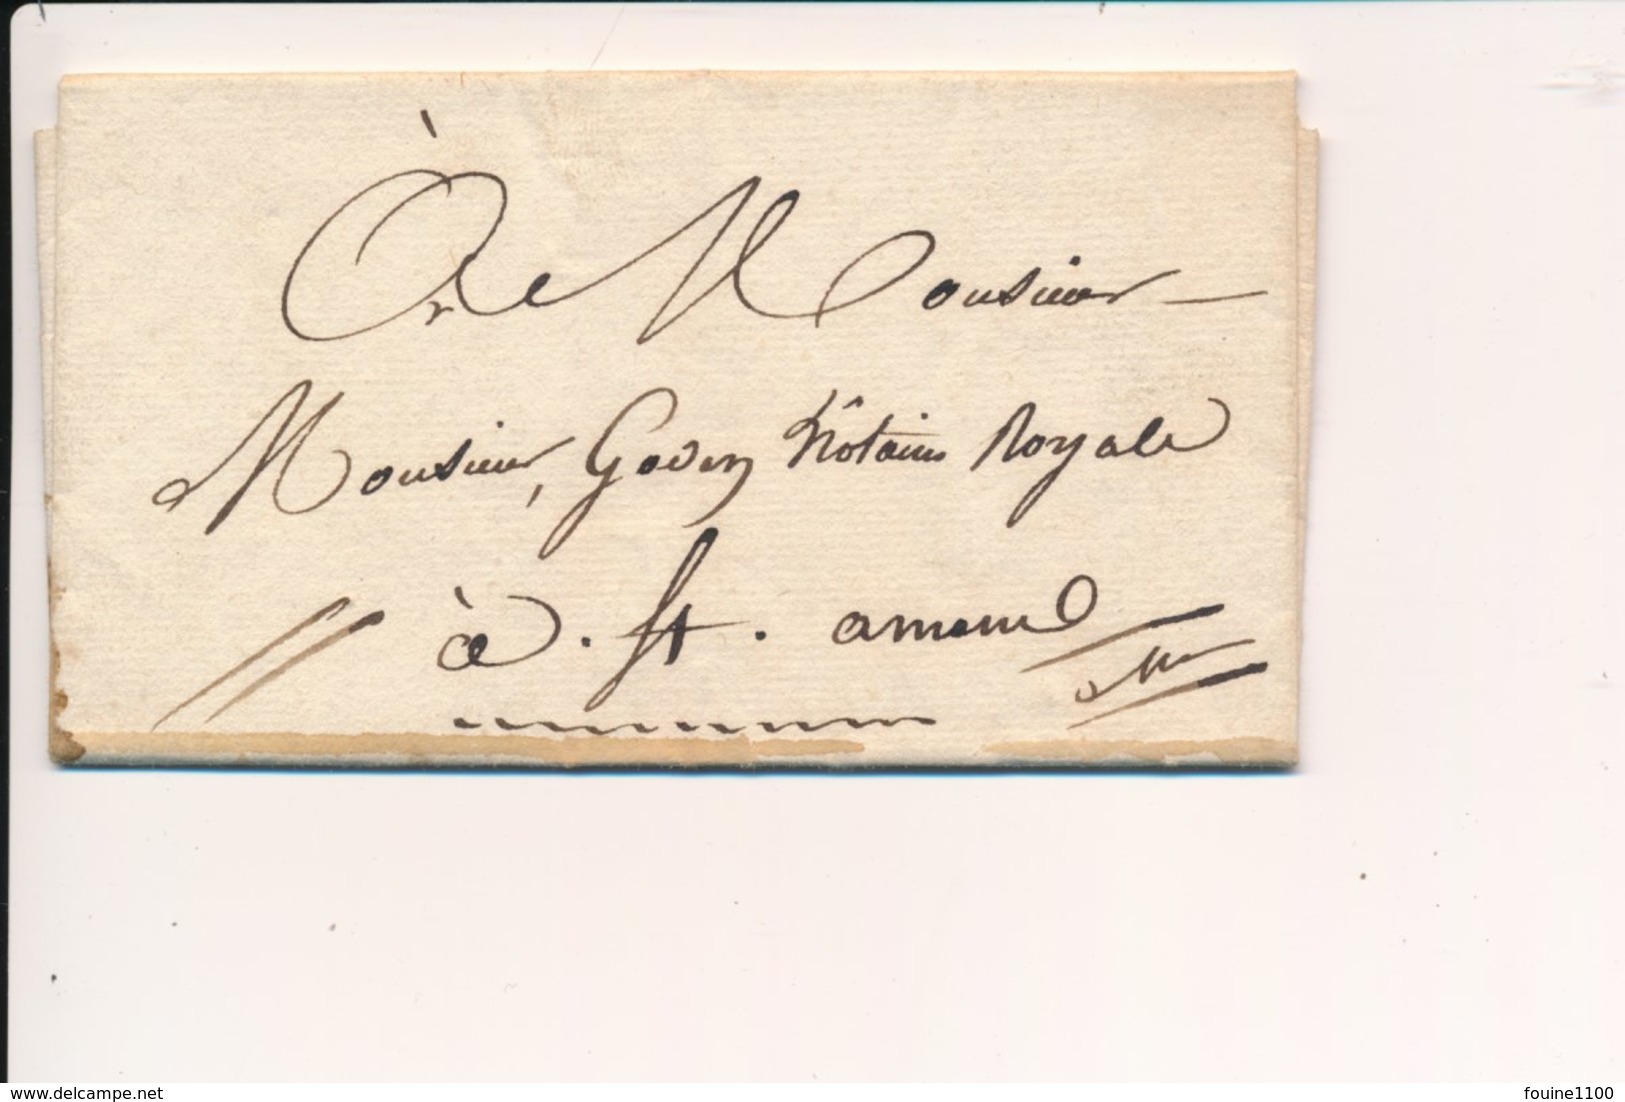 À Monsieur
Monsieur, Goden Nôtaire Royale
à . St . amand
delcampe.net
fouine1100